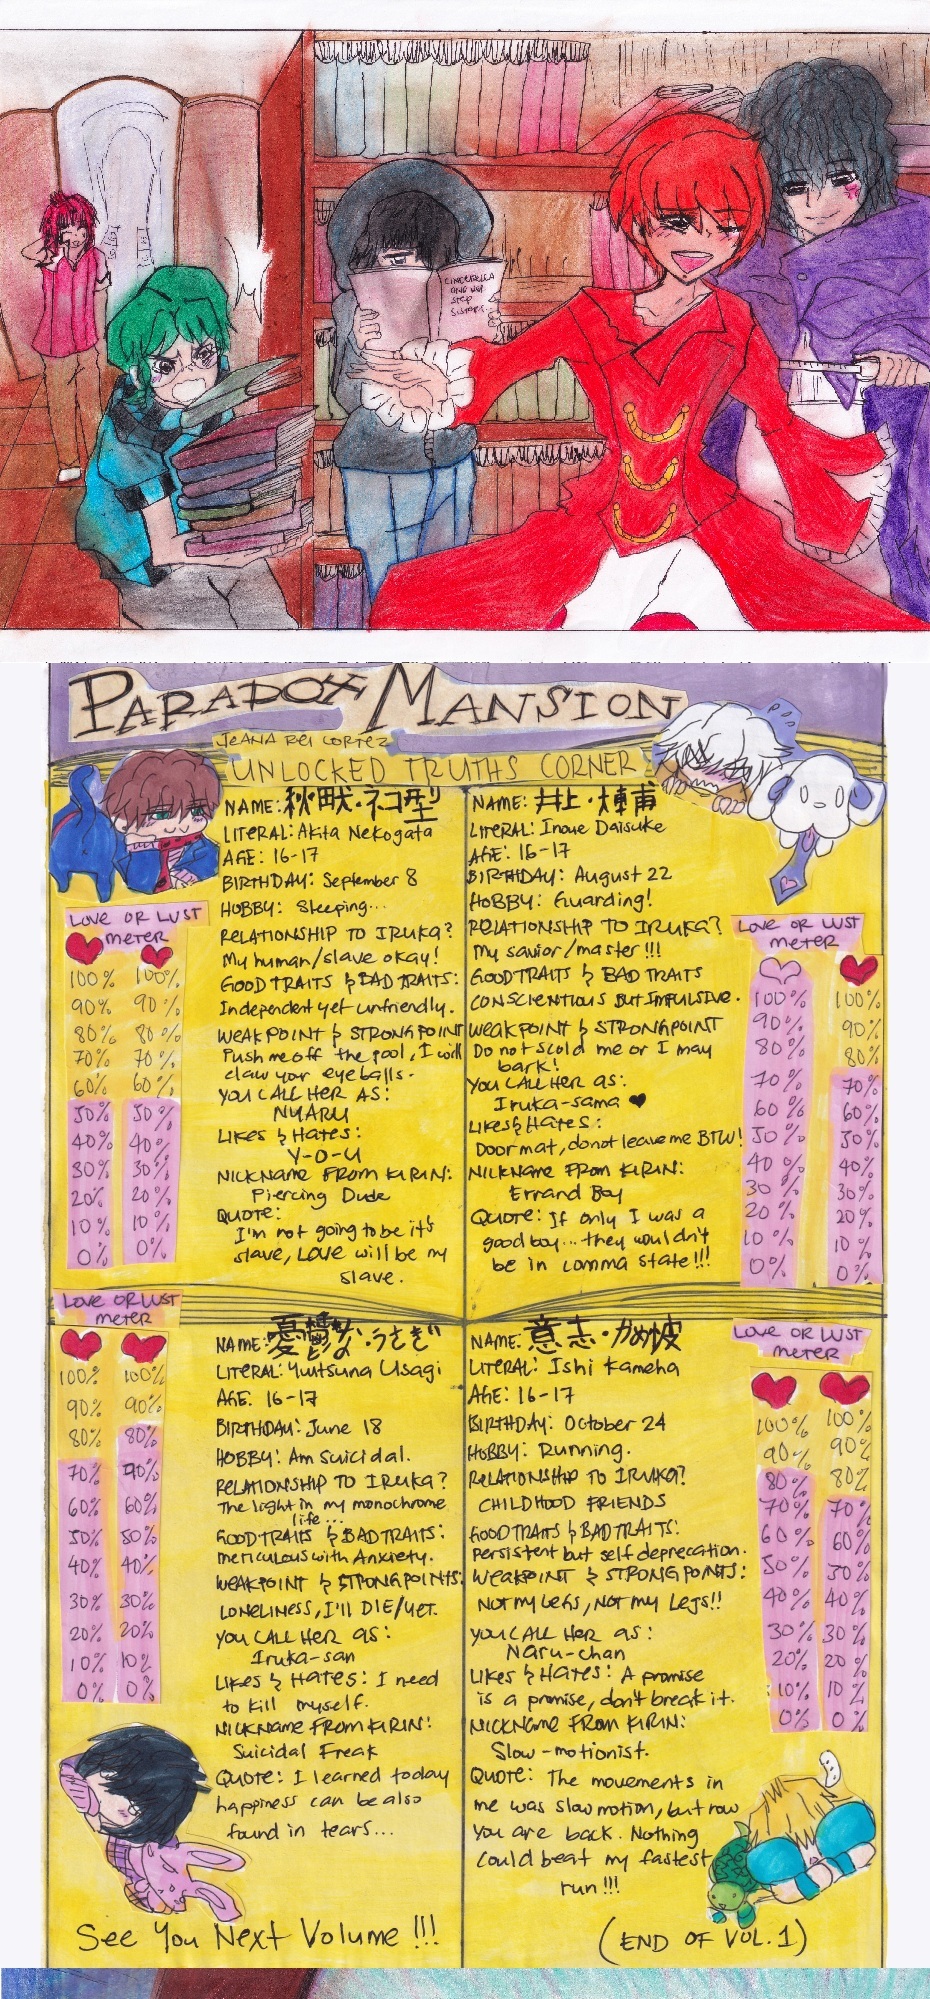 CINDERELLA
AND HER
STEP
SISTERS.
PARADOX MANSION
JEANA REI CORTEZ
UNLOCKED TRUTHS CORNER
NAME: 秋畎・ネコ型
LITERAL: Akita Nekogata
AGE: 16-17
BIRTHDAY: September 8
HOBBY: Sleeping...
RELATIONSHIP TO IRUKA?
My human/slave okay!
GOOD TRAITS & BAD TRAITS:
Independent yet unfriendly.
WEAKPOINT & STRONGPOINT
Push me off the pool, I will
claw your eyeballs.
YOU CALL HER AS:
NYARU
LIKES & HATES:
Y-O-U
NICKNAME FROM KIRIN:
Piercing Dude
QUOTE:
I'm not going to be it's
slave, LOVE will be my
slave.
LOVE OR LUST
METER
100% 100%
90% 90%
80% 80%
70% 70%
60% 60%
50% 50%
40% 40%
30% 30%
20% 20%
10% 10%
0% 0%
NAME: 井上・
LITERAL: Inoue Daisuke
AGE: 16-17
BIRTHDAY: August 22
HOBBY: Guarding!
RELATIONSHIP TO IRUKA?
My savior/master!!!
GOOD TRAITS & BAD TRAITS
CONSCIENTIOUS BUT IMPULSIVE.
WEAKPOINT & STRONGPOINT
Do not scold me or I may
bark!
YOU CALL HER AS:
Iruka-sama ♥
LIKES & HATES:
Doormat, donot leave me BTW!
NICKNAME FROM KIRIN:
Errand Boy
QUOTE: If only I was a
good boy... they wouldn't
be in comma state!!!
LOVE OR LUST
METER
100% 100%
90% 90%
80% 80%
70% 70%
60% 60%
50% 50%
40% 40%
30% 30%
20% 20%
10% 10%
0% 0%
LOVE OR LUST
METER
100% 100%
90% 90%
80% 80%
70% 90%
60% 60%
50% 50%
40% 40%
30% 30%
20% 20%
10% 10%
0% 0%
NAME: 憂鬱な・うさぎ
LITERAL: Yuutsuna Usagi
AGE: 16-17
BIRTHDAY: June 18
HOBBY: Am Suicidal.
RELATIONSHIP TO IRUKA?
The light in my monochrome
life...
GOOD TRAITS & BAD TRAITS:
Meticulous with Anxiety.
WEAKPOINT & STRONGPOINTS:
LONELINESS, I'll DIE/YET.
YOU CALL HER AS:
Iruka-san
LIKES & HATES: I need
to kill myself.
NICKNAME FROM KIRIN:
Suicidal Freak
QUOTE: I learned today
happiness can be also
found in tears...
NAME: 意志・かめ坡
LITERAL: Ishi Kameha
AGE: 16-17
BIRTHDAY: October 24
HOBBY: Running.
RELATIONSHIP TO IRUKA?
CHILDHOOD FRIENDS
GOOD TRAITS & BAD TRAITS:
Persistent but self deprecation.
WEAKPOINT & STRONGPOINTS:
NOT MY LEGS, NOT MY LEGS!!
YOU CALL HER AS:
Naru-chan
LIKES & HATES: A promise
is a promise, don't break it.
NICKNAME FROM KIRIN:
Slow-motionist.
QUOTE: The movements in
me was slow motion, but now
you are back. Nothing
could beat my fastest
run!!!
LOVE OR LUST
METER
100% 100%
90% 90%
80% 80%
70% 70%
60% 60%
50% 50%
40% 40%
30% 30%
20% 20%
10% 10%
0% 0%
See You Next Volume!!!
(END OF VOL. 1)